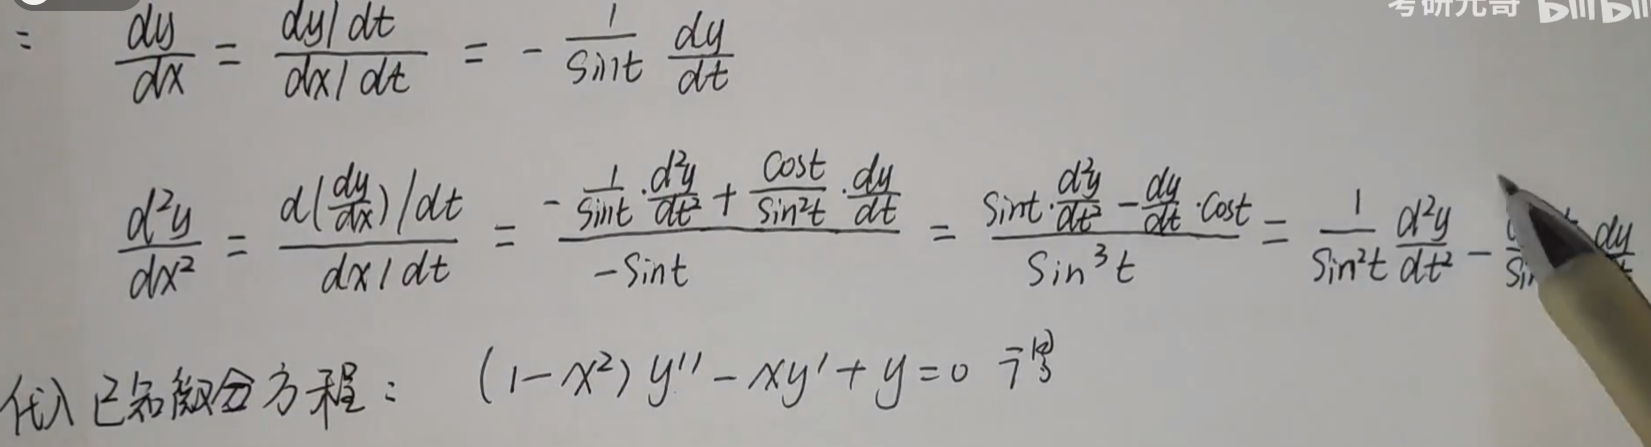 考研元哥 bilibili
= dy/dx = (dy/dt)/(dx/dt) = - 1/sint dy/dt
d²y/dx² = (d(dy/dx)/dt)/(dx/dt) = (- 1/sint · d²y/dt² + cost/sin²t · dy/dt)/(-sint) = (sint · d²y/dt² - dy/dt · cost)/sin³t = 1/sin²t d²y/dt² - dy
代入已知微分方程: (1-x²)y'' - xy' + y = 0 可得